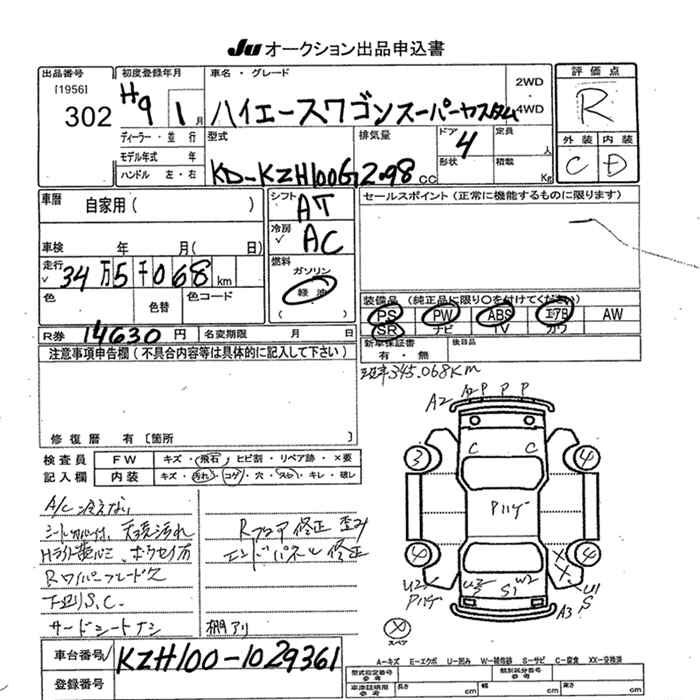 Ju オークション出品申込書
出品番号
[1956]
302
初度登録年月
H9 1月
ディーラー・並 行
モデル年式 年
ハンドル 左・右
車名・グレード
ハイエースワゴンスーパーカスタム
2WD
4WD
型式
KD-KZH100G
排気量
2.98 cc
ドア
4
形状
定員
人
積載
Kg
評 価 点
R
外 装
内 装
C
D
車暦
自家用( )
車検 年 月( 日)
走行
34万5千068km
色
色替
色コード
シフト
AT
冷房
AC
燃料
ガソリン
軽 油
( )
セールスポイント(正常に機能するものに限ります)
装備品(純正品に限り○を付けてください)
PS
PW
ABS
エアB
AW
SR
ナビ
TV
カワ
R券 14630 円
名変期限 月 日
新車保証書
有・無
後日品
345.068Km
注意事項申告欄(不具合内容等は具体的に記入して下さい)
修 復 暦 有 [箇所 ]
検 査 員
記 入 欄
FW
キズ・飛石・ヒビ割・リペア跡・×要
内装
キズ・汚れ・コゲ・穴・スレ・キレ・破レ
A/C 冷えない
天張汚れ
Rワイパーブレードスレ
下廻りS.C.
サードシートナシ
Rフロア修正 歪み
エンドパネル修正
棚アリ
A2
A2 P P P
C
C
3
4
Pハゲ
4
4
U2
Pハゲ
U3
W2
S1
XX
U1
S
A3
X
スペア
車台番号
KZH100-1029361
登録番号
A-キズ E-エクボ U-凹み W-補修跡 S-サビ C-腐食 XX-交換済
型式指定番号
参考
類別区分番号
参考
車庫証明用
参考
長さ
cm
幅
cm
高さ
cm